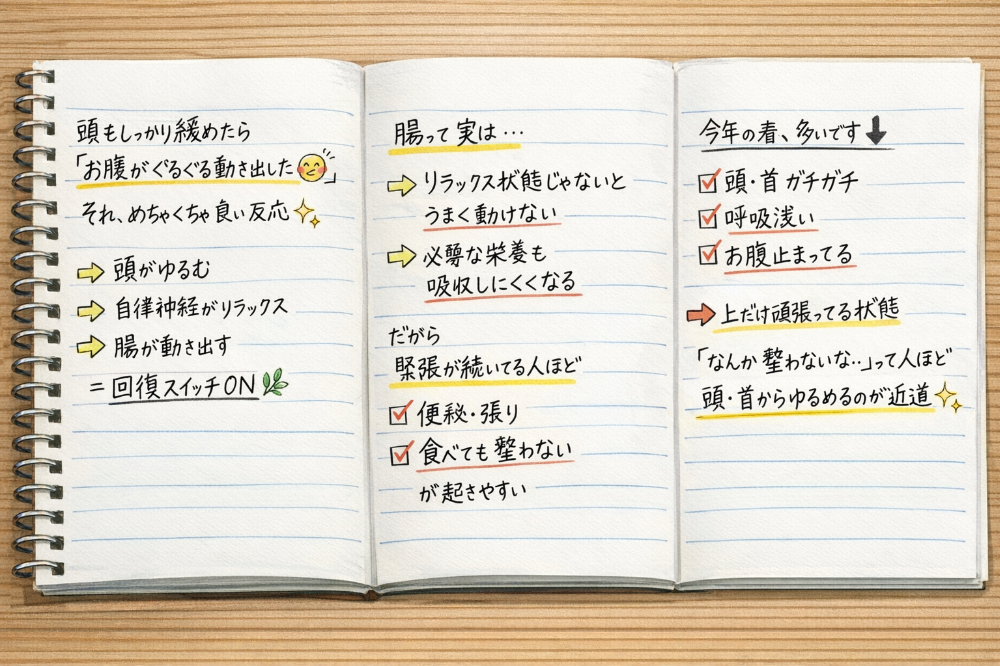 頭もしっかり緩めたら
「お腹がぐるぐる動き出した😊」
それ、めちゃくちゃ良い反応✨
➡ 頭がゆるむ
➡ 自律神経がリラックス
➡ 腸が動き出す
= 回復スイッチON🌿
腸って実は…
➡ リラックス状態じゃないと
うまく動けない
➡ 必要な栄養も
吸収しにくくなる
だがら
緊張が続いてる人ほど
☑ 便秘・張り
☑ 食べても整わない
が起きやすい
今年の春、多いです⬇
☑ 頭・首ガチガチ
☑ 呼吸浅い
☑ お腹止まってる
➡ 上だけ頑張ってる状態
「なんか整わないな‥」って人ほど
頭・首からゆるめるのが近道✨